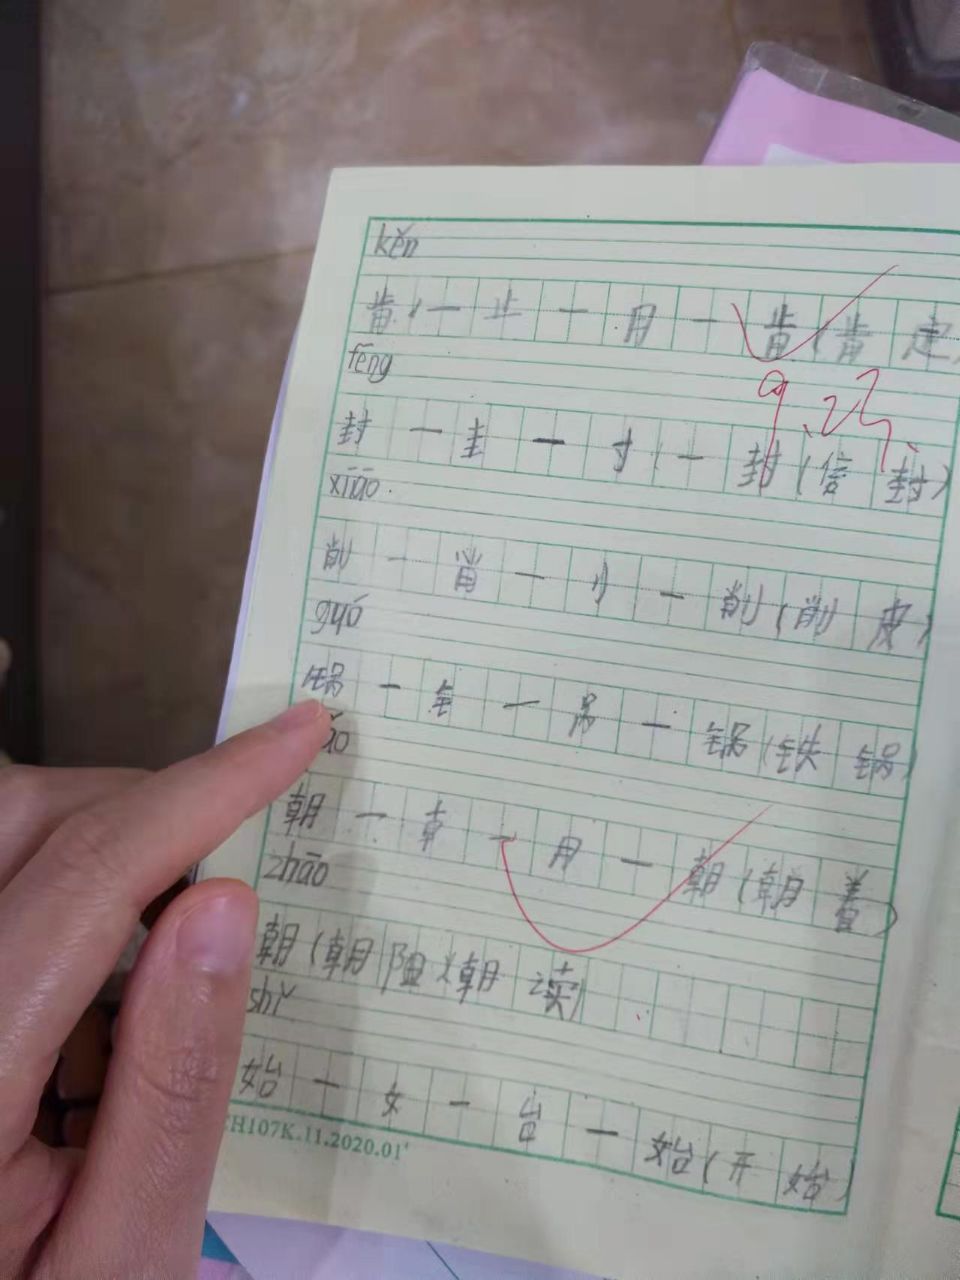 kěn
肯(一止一月一肯(肯定)
fēng
封一圭一寸(一封(信封)
xiāo
削一肖一刂一削(削皮)
guō
锅一钅一呙一锅(铁锅)
ǎo
朝一𠦝一月一朝(朝着)
zhāo
朝(朝阳)(朝读)
shǐ
始一女一台一始(开始)
9.23.
CH107K.11.2020.01